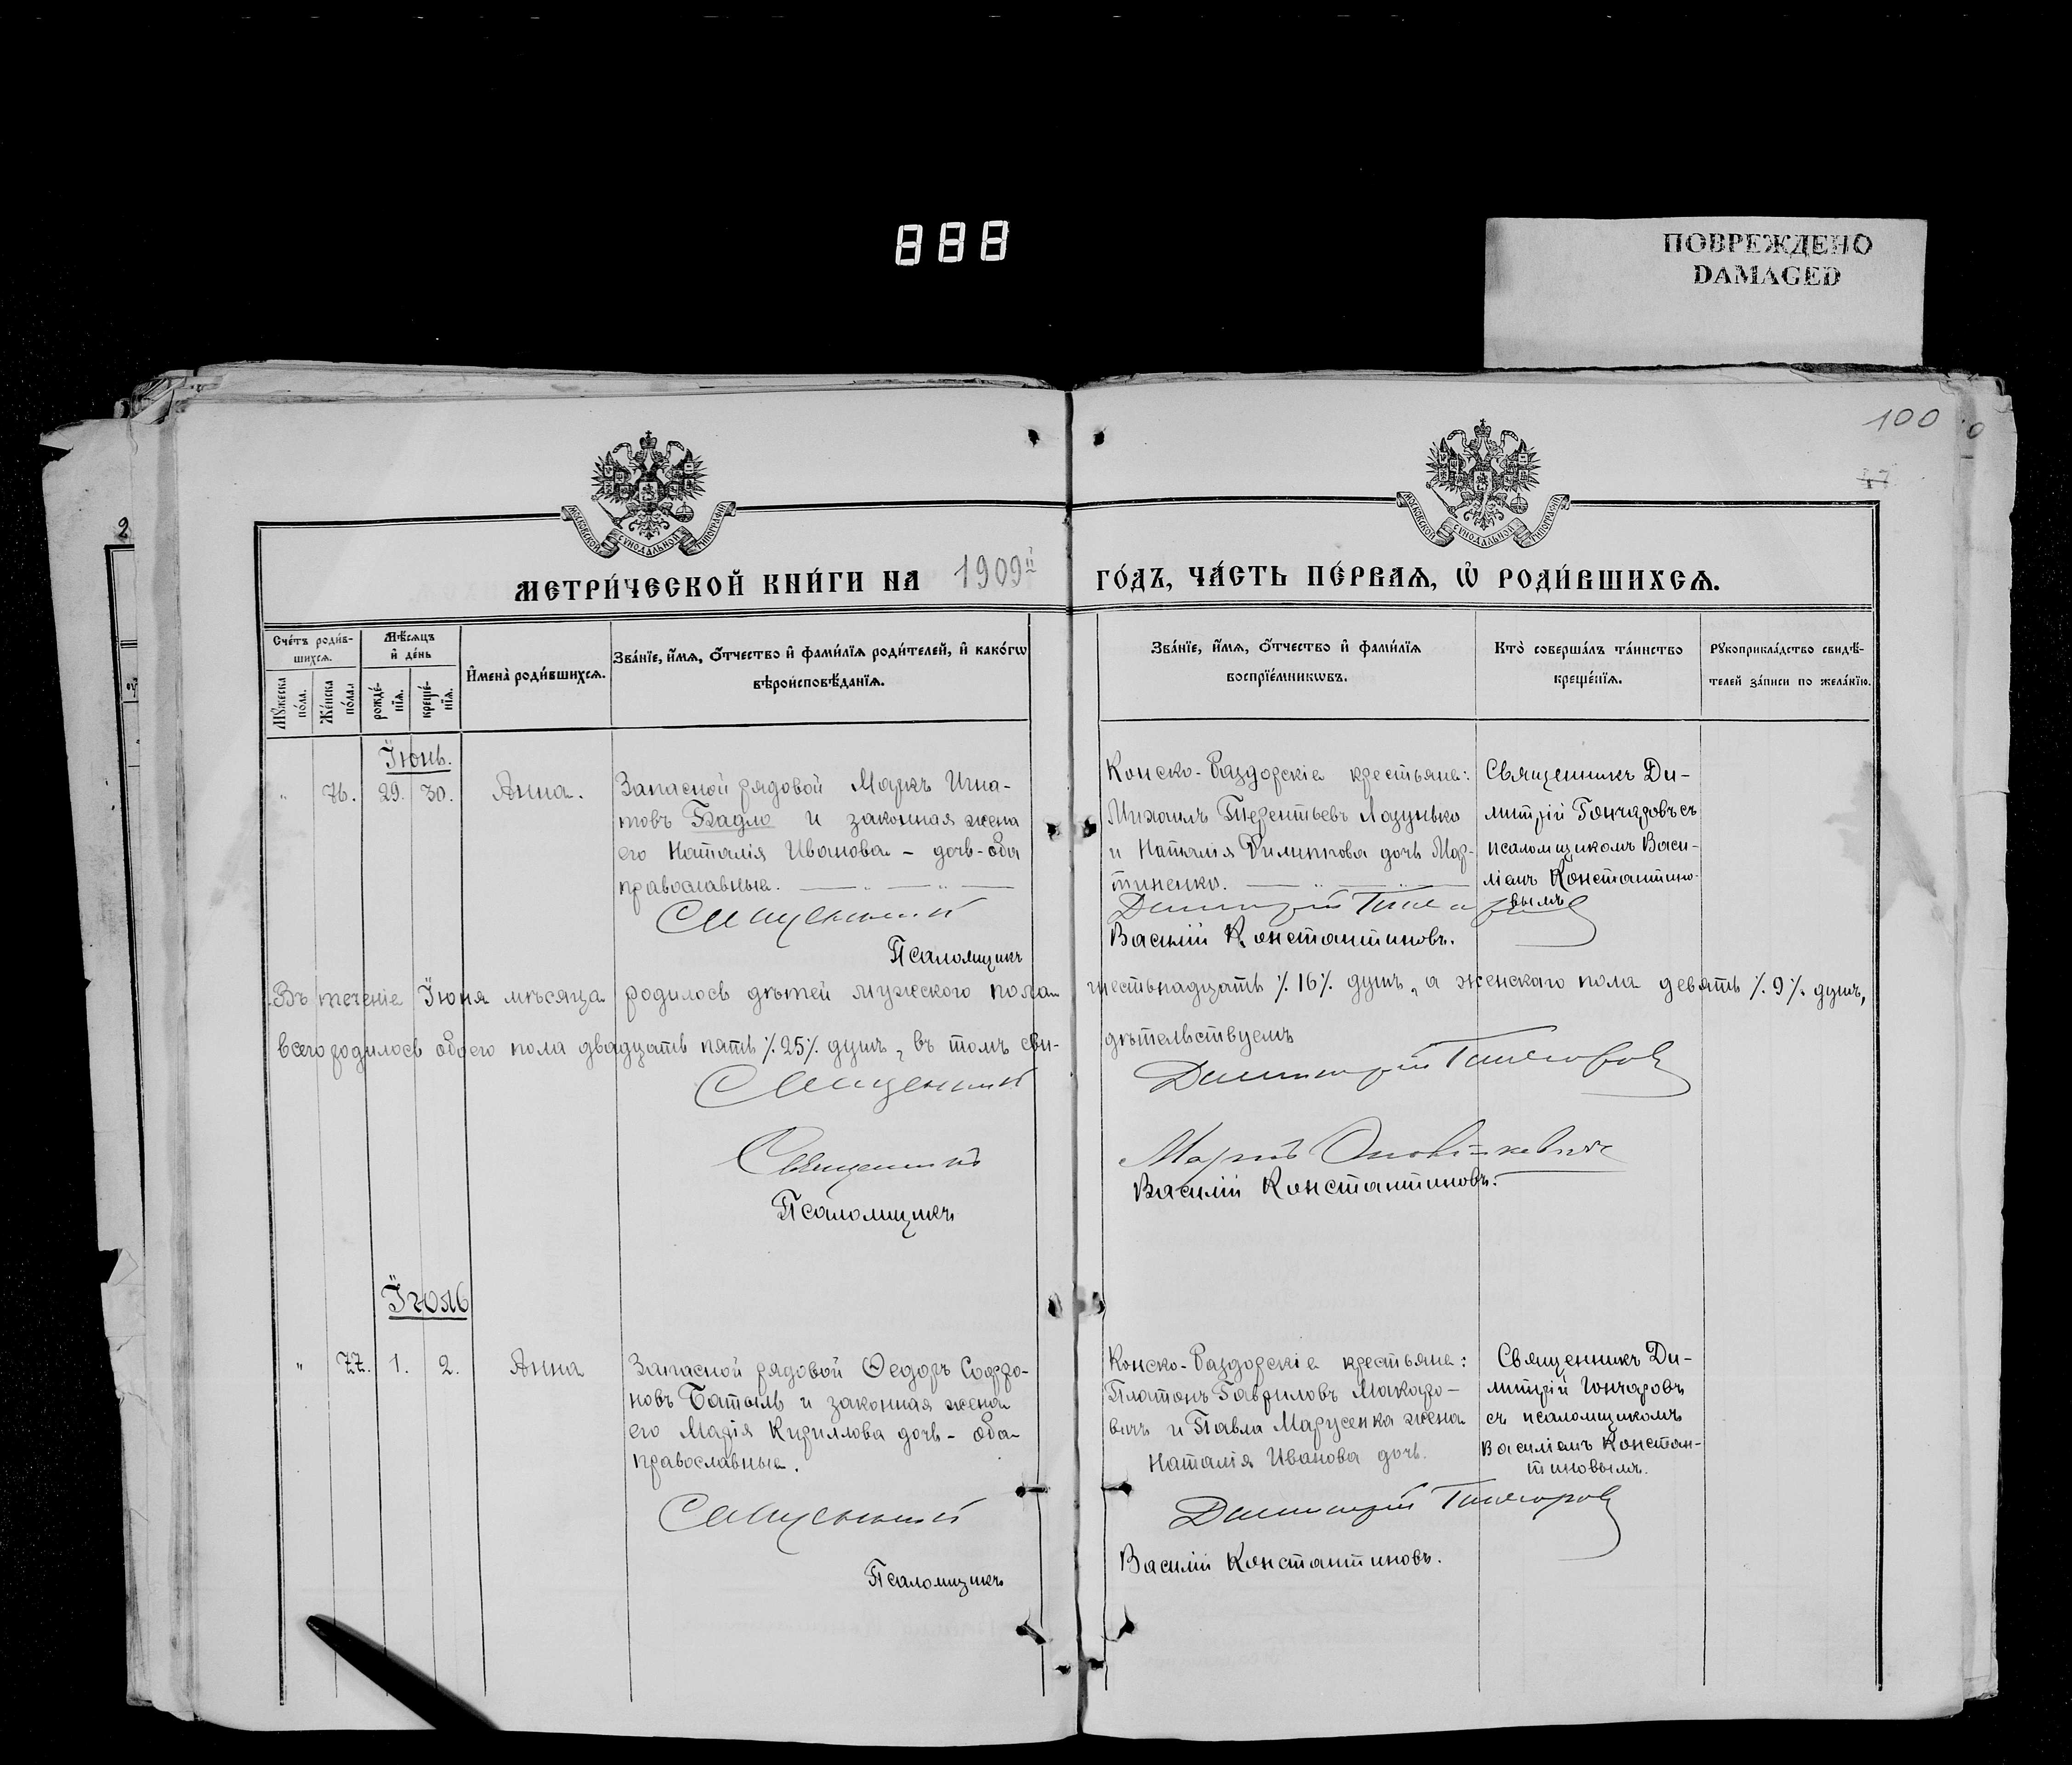 888
ПОВРЕЖДЕНО
DAMAGED
100
2
МОСКОВСКОЙ СУНОДАЛЬНОЙ ТИПОГРАФІИ
МОСКОВСКОЙ СУНОДАЛЬНОЙ ТИПОГРАФІИ
МЕТРИ́ЧЕСКОЙ КНИ́ГИ НА 1909й ГО́ДЪ, ЧА́СТЬ ПЕ́РВАѦ, Ѽ РОДИ́ВШИХСѦ.
Сче́тъ роди́в-
шихсѧ.
Мꙋжеска по́ла.
Же́нска по́ла.
Мѣ́сѧцъ
и҆ де́нь
рожде́-
нїѧ.
креще́-
нїѧ.
И҆мена̀ роди́вшихсѧ.
Зва́нїе, и҆́мѧ, ѻ҆́тчество и҆ фами́лїѧ роди́телей, и҆ како́гѡ
вѣроисповѣ́данїѧ.
Зва́нїе, и҆́мѧ, ѻ҆́тчество и҆ фами́лїѧ
воспрїе́мникѡвъ.
Кто̀ соверша́лъ та́инство
креще́нїѧ.
Рꙋкоприкла́дство свидѣ́-
телей за́писи по жела́нїю.
Іюнь.
" 76. 29. 30. Анна.
Запасной рядовой Маркъ Игна-
товъ Бадло и законная жена
его Наталія Иванова – дочь – оба
православные.
Конско-Раздорскіе крестьяне:
Михаилъ Терентьевъ Лазунько
и Наталія Филиппова дочь Мар-
тиненко.
Священникъ Ди-
митрій Гончаровъ съ
псаломщикомъ Васи-
ліемъ Константино-
вымъ
Священникъ Димитрій Гончаровъ
Псаломщикъ Василій Константиновъ.
Въ теченіе Іюня мѣсяца родилось дѣтей мужского пола шестьнадцать /.16/. душъ, а женскаго пола девять /.9/. душъ,
всего родилось обоего пола двадцать пять /.25/. душъ, въ томъ сви-
дѣтельствуемъ
Священникъ Димитрій Гончаровъ
Священникъ
Псаломщикъ Василій Константиновъ.
Іюль
" 77. 1. 2. Анна
Запасной рядовой Ѳеодоръ Софро-
новъ Батыль и законная жена
его Марія Кириллова дочь – оба
православные.
Конско-Раздорскіе крестьяне:
Платонъ Гавриловъ Макаро-
вичъ и Павла Марусенка жена
Наталія Иванова дочь.
Священникъ Ди-
митрій Гончаровъ
съ псаломщикомъ
Василіемъ Констан-
тиновымъ.
Священникъ Димитрій Гончаровъ
Псаломщикъ Василій Константиновъ.